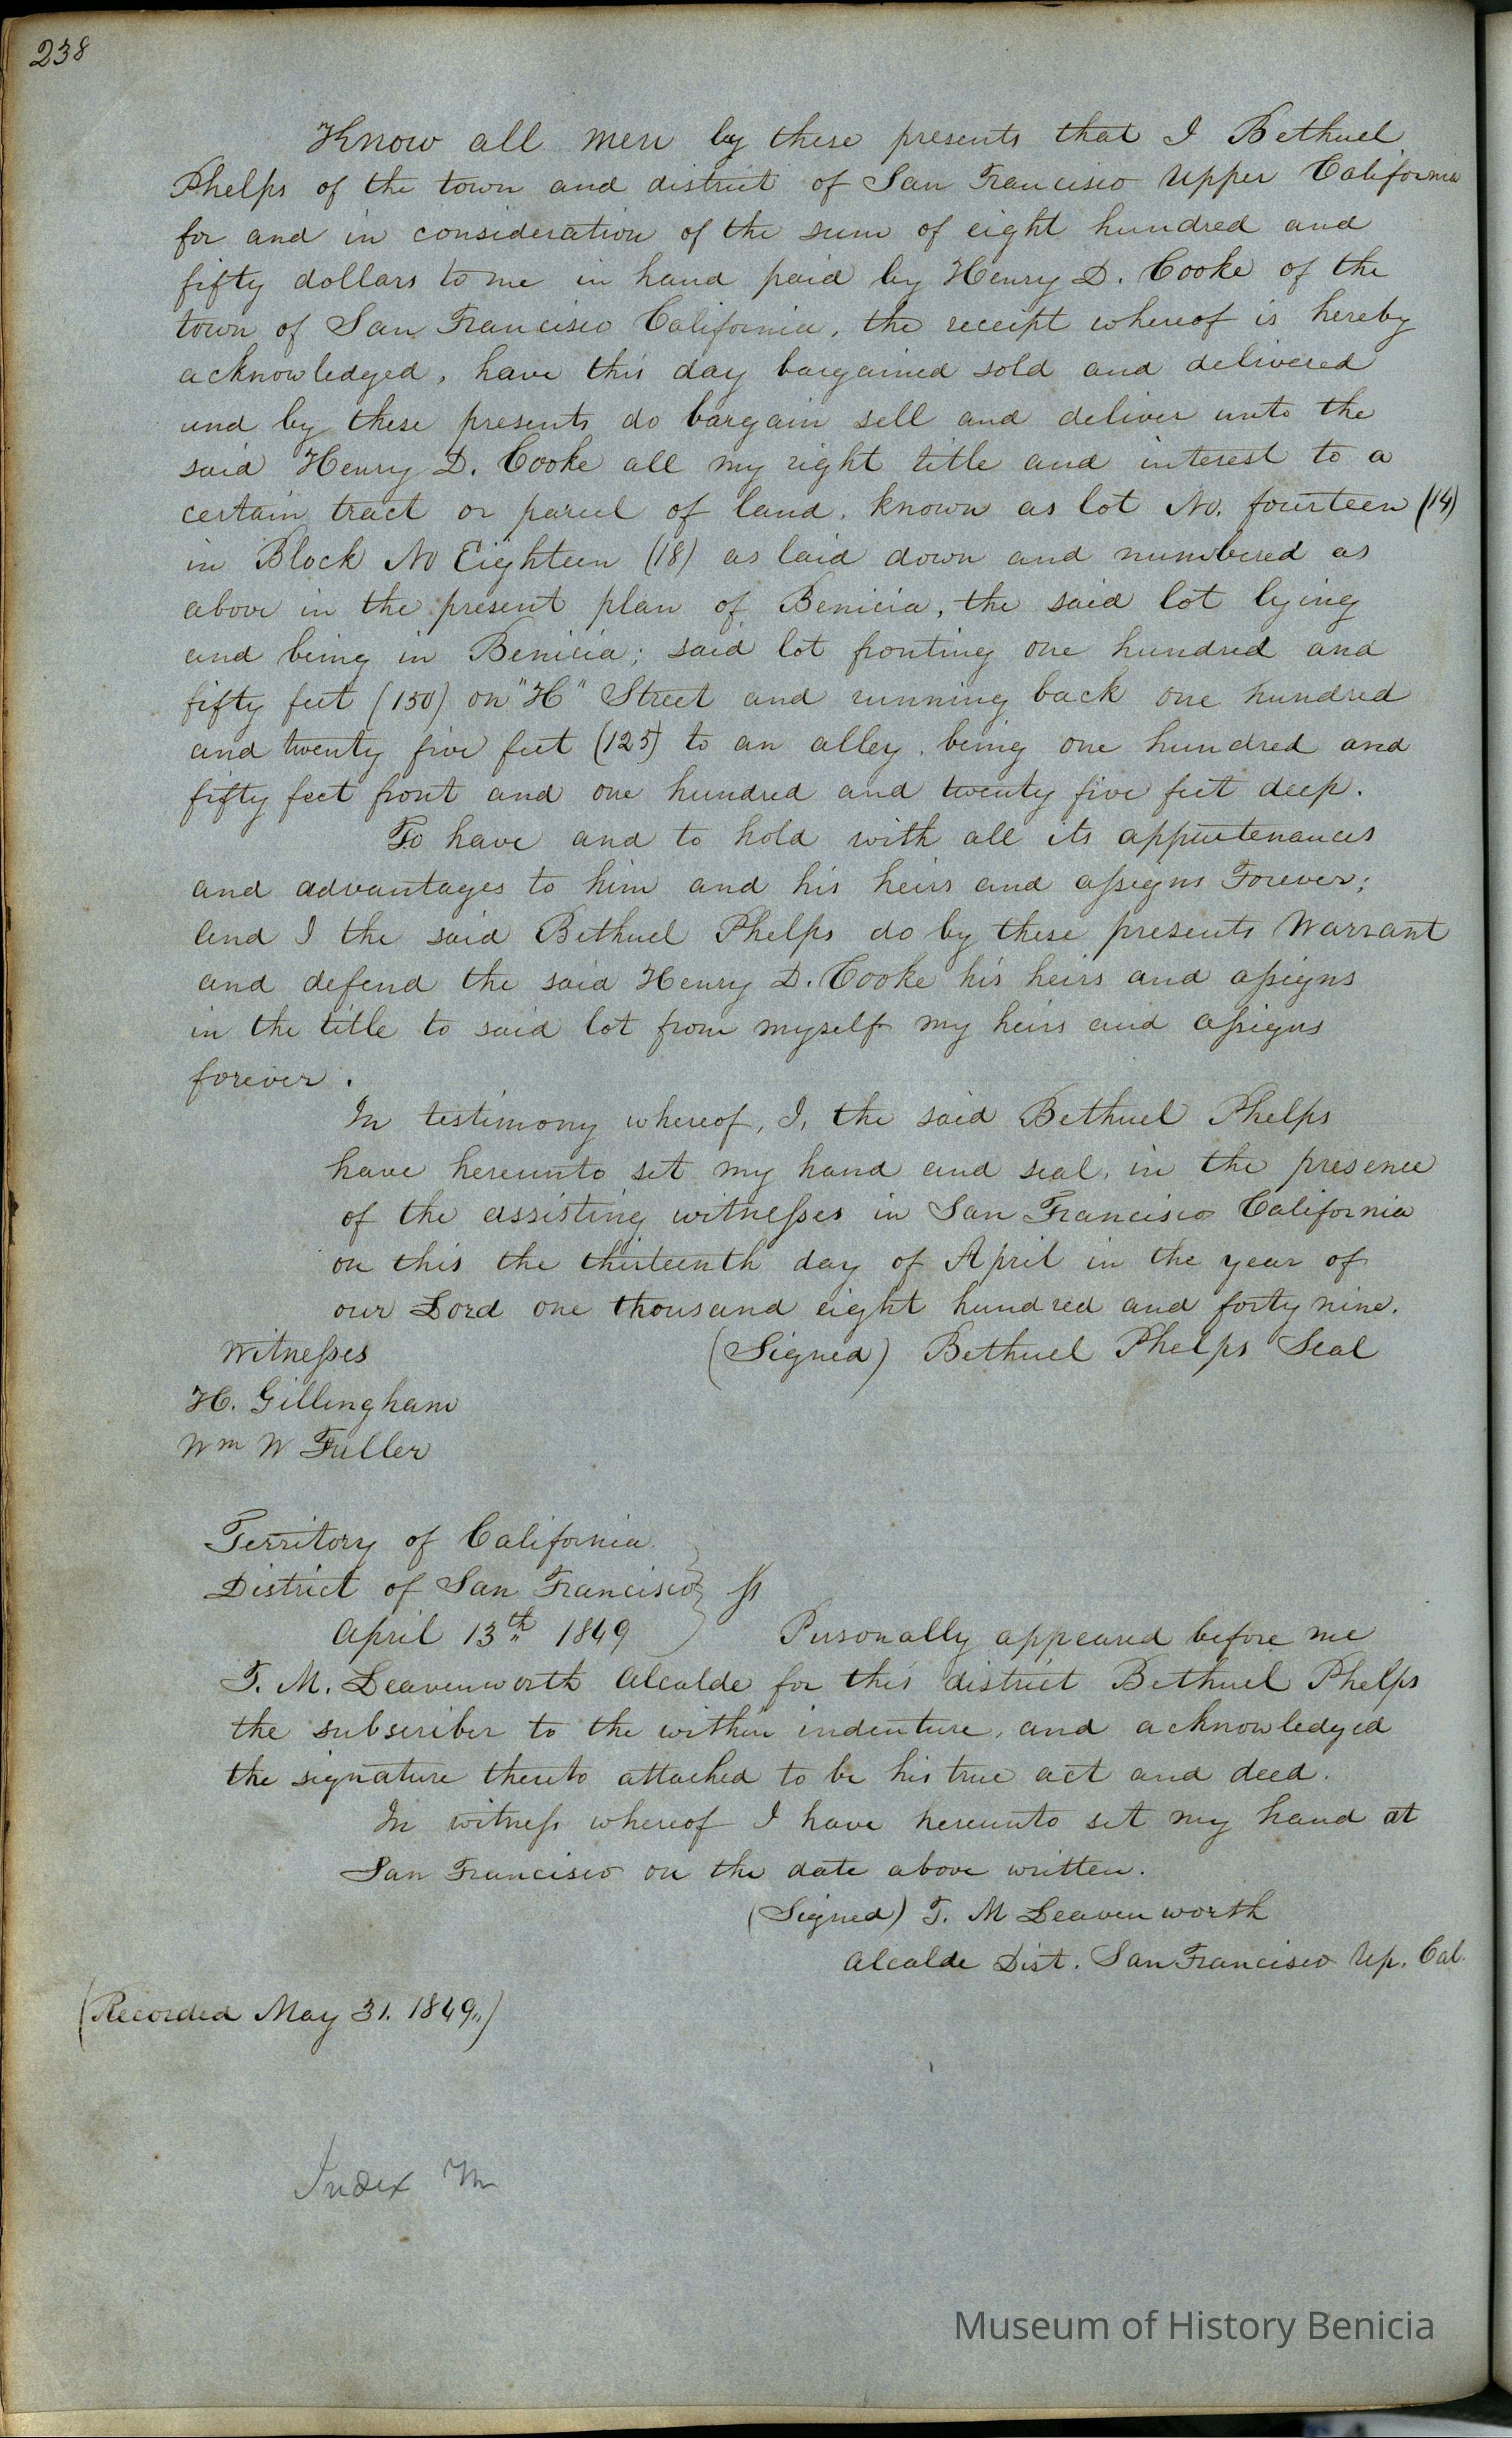 238
Know all men by these presents that I Bethuel
Phelps of the town and district of San Francisco Upper California
for and in consideration of the sum of eight hundred and
fifty dollars to me in hand paid by Henry D. Cooke of the
town of San Francisco California, the receipt whereof is hereby
acknowledged, have this day bargained sold and delivered
and by these presents do bargain sell and deliver unto the
said Henry D. Cooke all my right title and interest to a
certain tract or parcel of land, known as lot No. fourteen (14)
in Block No Eighteen (18) as laid down and numbered as
above in the present plan of Benicia, the said lot lying
and being in Benicia; said lot fronting one hundred and
fifty feet (150) on "H" Street and running back one hundred
and twenty five feet (125) to an alley, being one hundred and
fifty feet front and one hundred and twenty five feet deep.
To have and to hold with all its appurtenances
and advantages to him and his heirs and assigns Forever;
and I the said Bethuel Phelps do by these presents Warrant
and defend the said Henry D. Cooke his heirs and assigns
in the title to said lot from myself my heirs and assigns
forever.
In testimony whereof, I, the said Bethuel Phelps
have hereunto set my hand and seal, in the presence
of the assisting witnesses in San Francisco California
on this the thirteenth day of April in the year of
our Lord one thousand eight hundred and forty nine.
Witnesses (Signed) Bethuel Phelps Seal
H. Gillingham
Wm W Fuller
Territory of California
District of San Francisco } ss
April 13th 1849 Personally appeared before me
T. M. Leavenworth Alcalde for this district Bethuel Phelps
the subscriber to the within indenture, and acknowledged
the signature thereto attached to be his true act and deed.
In witness whereof I have hereunto set my hand at
San Francisco on the date above written.
(Signed) T. M Leavenworth
Alcalde Dist. San Francisco Up. Cal.
(Recorded May 31. 1849,,)
Index M
Museum of History Benicia